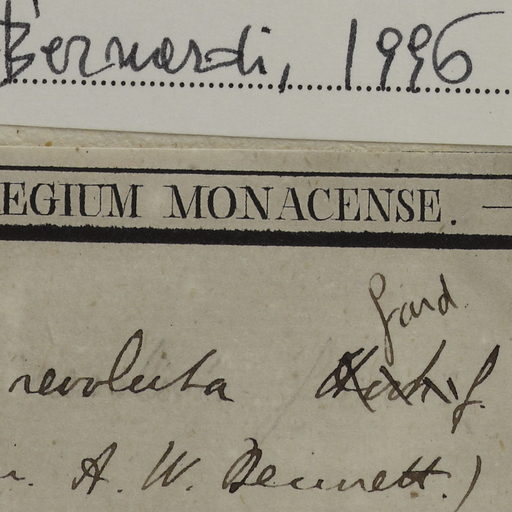 Bernardi, 1996
EGIUM MONACENSE.
Gard.
revoluta f.
A. W. Bennett.)